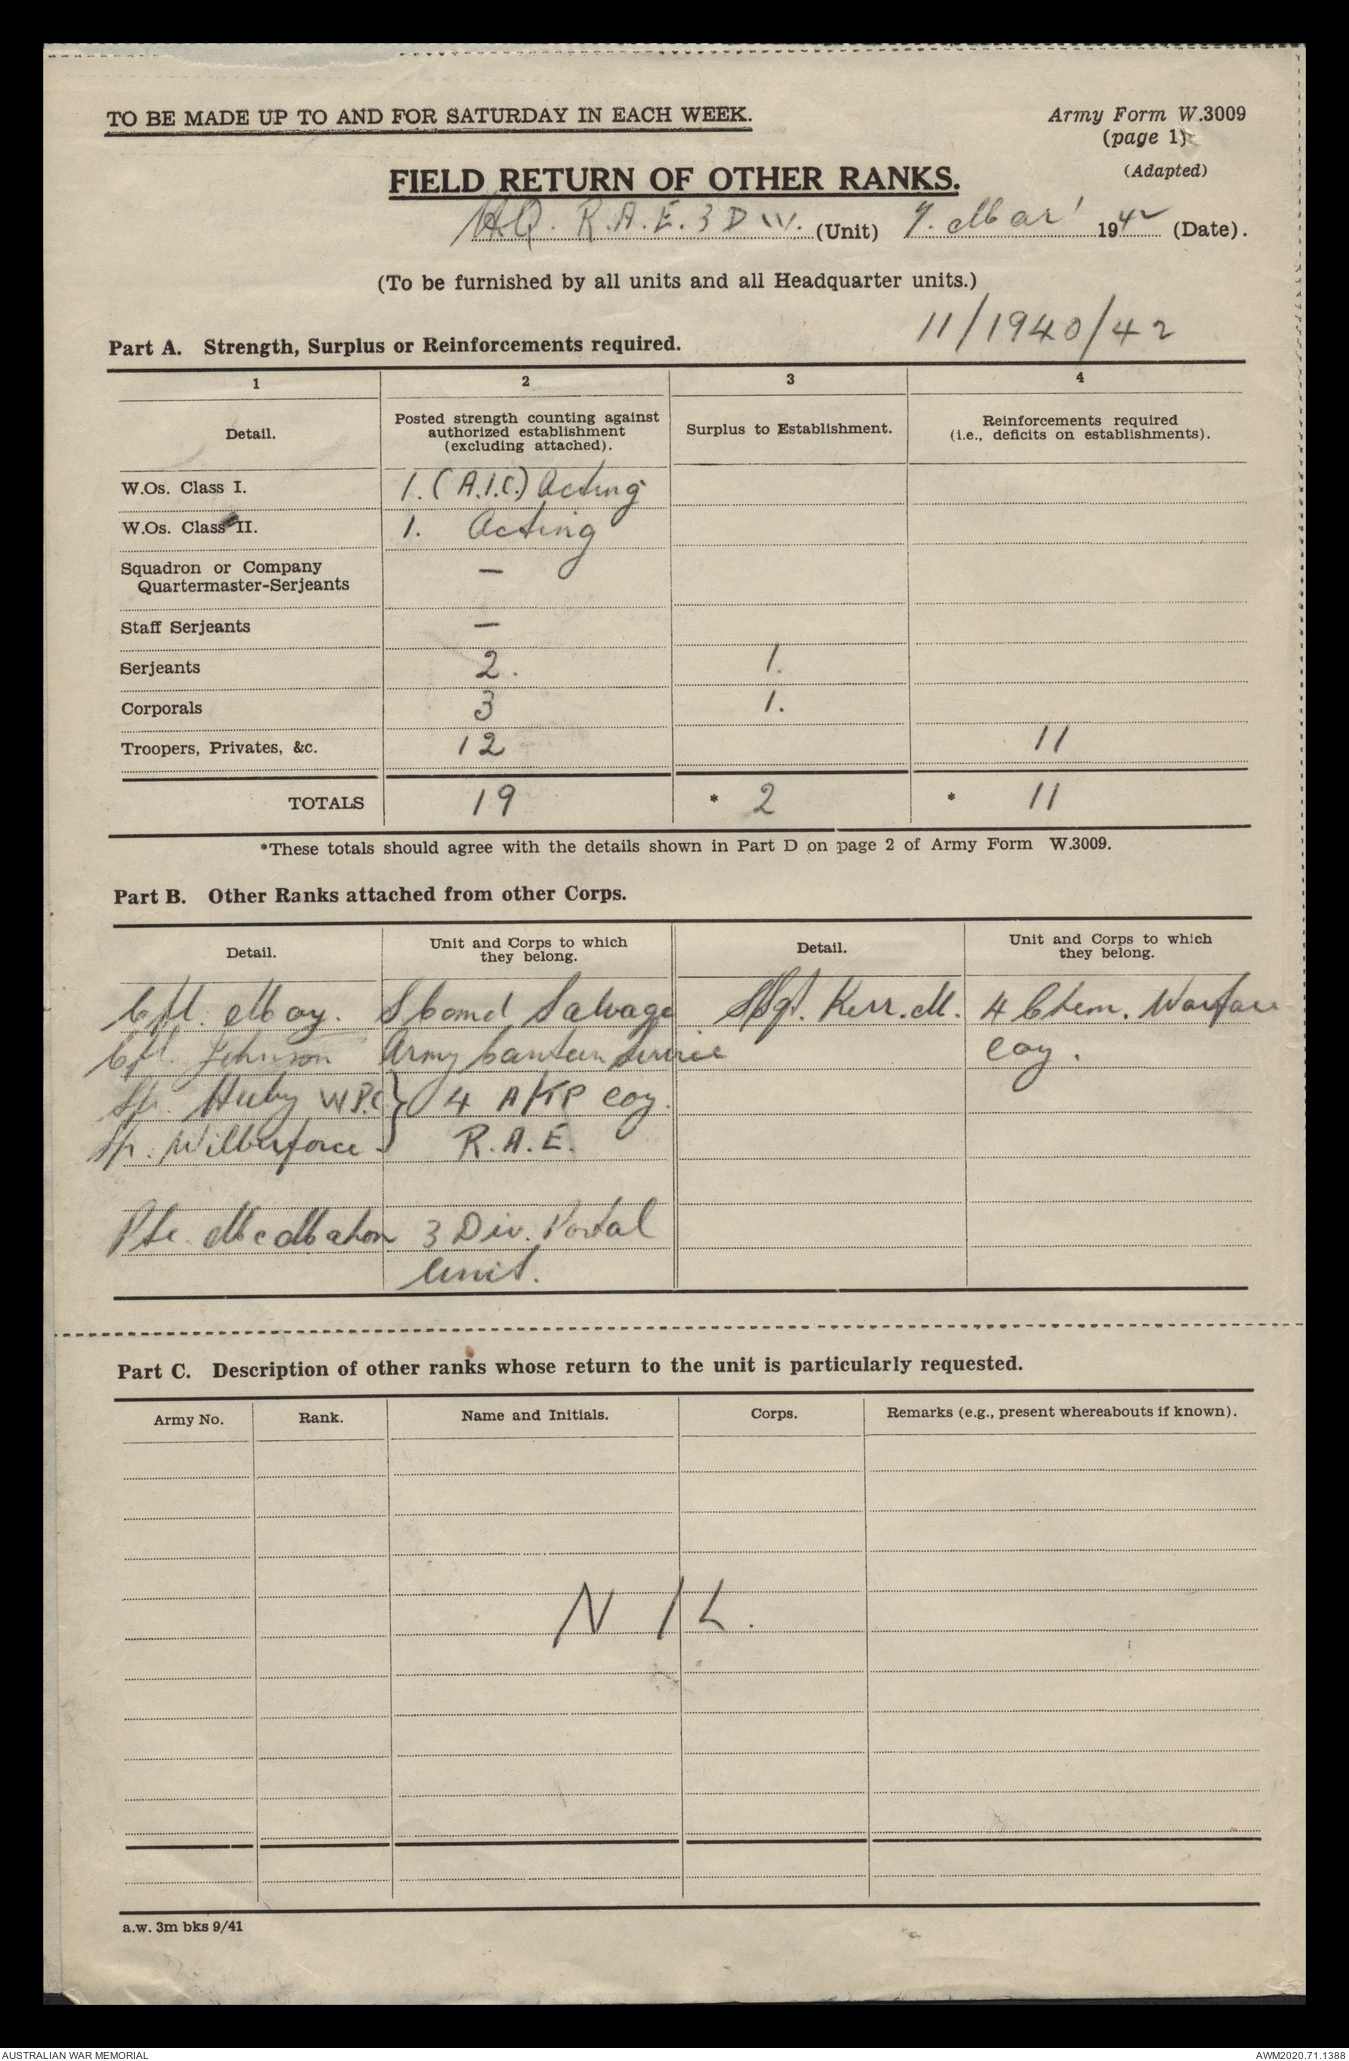 TO BE MADE UP TO AND FOR SATURDAY IN EACH WEEK.
Army Form W.3009
(page 1)
(Adapted)
FIELD RETURN OF OTHER RANKS.
HQ. R.A.E. 3 DIV. (Unit) 7. Mar' 1942 (Date).
(To be furnished by all units and all Headquarter units.)
11/1940/42
Part A. Strength, Surplus or Reinforcements required.
1 2 3 4
Detail. Posted strength counting against authorized establishment (excluding attached). Surplus to Establishment. Reinforcements required (i.e., deficits on establishments).
W.Os. Class I. 1. (A.I.C.) Acting
W.Os. Class II. 1. Acting
Squadron or Company Quartermaster-Serjeants —
Staff Serjeants —
Serjeants 2. 1.
Corporals 3 1.
Troopers, Privates, &c. 12 11
TOTALS 19 * 2 * 11
*These totals should agree with the details shown in Part D on page 2 of Army Form W.3009.
Part B. Other Ranks attached from other Corps.
Detail. Unit and Corps to which they belong. Detail. Unit and Corps to which they belong.
Cpl. May. S Comd Salvage SSgt. Kerr. M. 4 Chem. Warfare
Cpl. Johnson Army Canteen Service Coy.
Sp. Huby W.P.C } 4 A/TP Coy.
Sp. Wilberforce. R.A.E.
Pte. McMahon 3 Div. Postal
Unit.
Part C. Description of other ranks whose return to the unit is particularly requested.
Army No. Rank. Name and Initials. Corps. Remarks (e.g., present whereabouts if known).
NIL.
a.w. 3m bks 9/41
AUSTRALIAN WAR MEMORIAL
AWM2020.71.1388